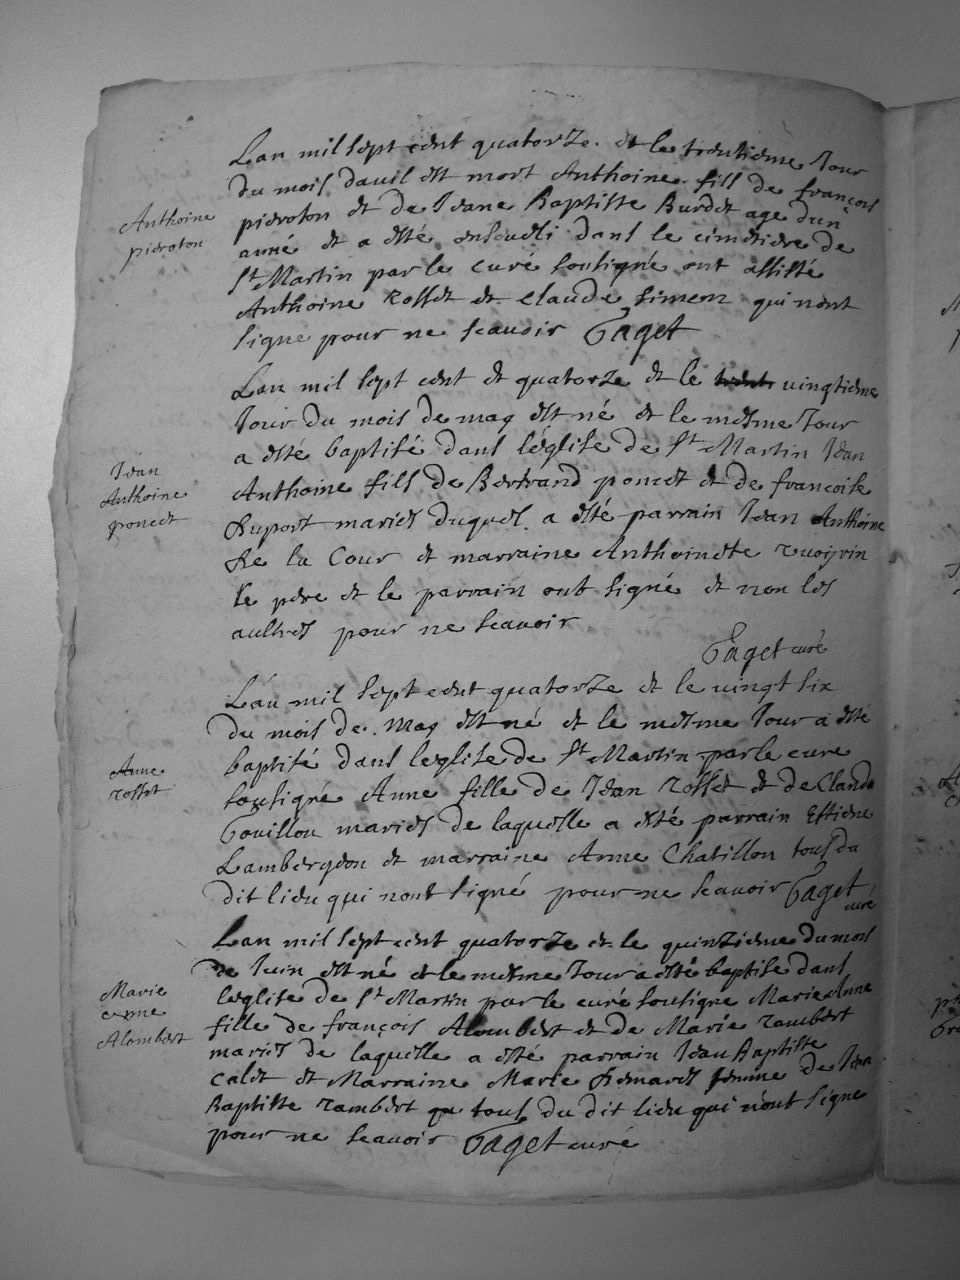 Lan mil sept cent quatorze. et le trentieme Jour
du mois davil est mort Anthoine. fils de françois
Anthoine
pieroton
pieroton et de Jeane Baptiste Burdet age dun
anné et a esté enseueli dans le cimetiere de
St Martin par le curé sousigné ont assisté
Anthoine Rosset et claude simon qui nont
signe pour ne scauoir Gaget
Lan mil sept cent et quatorze et le vingtieme
Jour du mois de may est né et le mesme Jour
a esté baptisé dans leglise de St Martin Jean
Jean
Anthoine
poncet
Anthoine fils de Bertrand poncet et de francoise
Dupont mariés duquel a esté parrain Jean Anthoine
De la Cour et marraine Anthoinete
le pere et le parrain ont signé et non les
aultres pour ne scauoir
Gaget curé
Lan mil sept cent quatorze et le vingt six
du mois de. May est né et le mesme Jour a esté
baptisé dans leglise de St Martin par le cure
Anne
rosset
sousigné Anne fille de Jean rosset et de Claude
Gouillou mariés de laquelle a esté parrain Estiene
Lambergeon et marraine Anne Chatillon tous du
dit lieu qui nont signé pour ne scauoir Gaget
curé
Lan mil sept cent quatorze et le quinzieme du mois
de Juin est né et le mesme Jour a esté baptise dans
leglise de St Martin par le curé sousigne Marie Anne
Marie
Alombert
fille de françois Alombert et de Marie rambert
mariés de laquelle a esté parrain Jean Baptiste
Calet et Marraine Marie femme de Jean
Baptiste rambert tous du dit lieu qui n'ont signe
pour ne scauoir Gaget curé